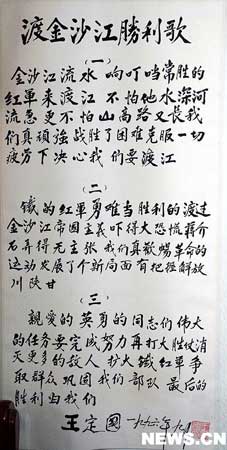 渡金沙江勝利歌
（一）
金沙江流水响叮当常胜的
紅軍来渡江 不怕地水深河
流急更不怕山高路又長我
们真頑強战胜了困难克服一切
疲劳下决心我们要渡江
（二）
鐵的紅軍勇难当胜利的渡过
金沙江帝国主義吓得大恐慌蒋介
石弄得无主张我们真歡暢革命的
运动发展了个新局面有把握解放
川陕甘
（三）
親爱的英勇的同志们伟大
的任务要完成努力再打大胜仗消
灭更多的敌人 扩大鐵紅軍争
取群众巩固我们部队 最后的
胜利归我们
王定國 一九九六年九月
NEWS.CN